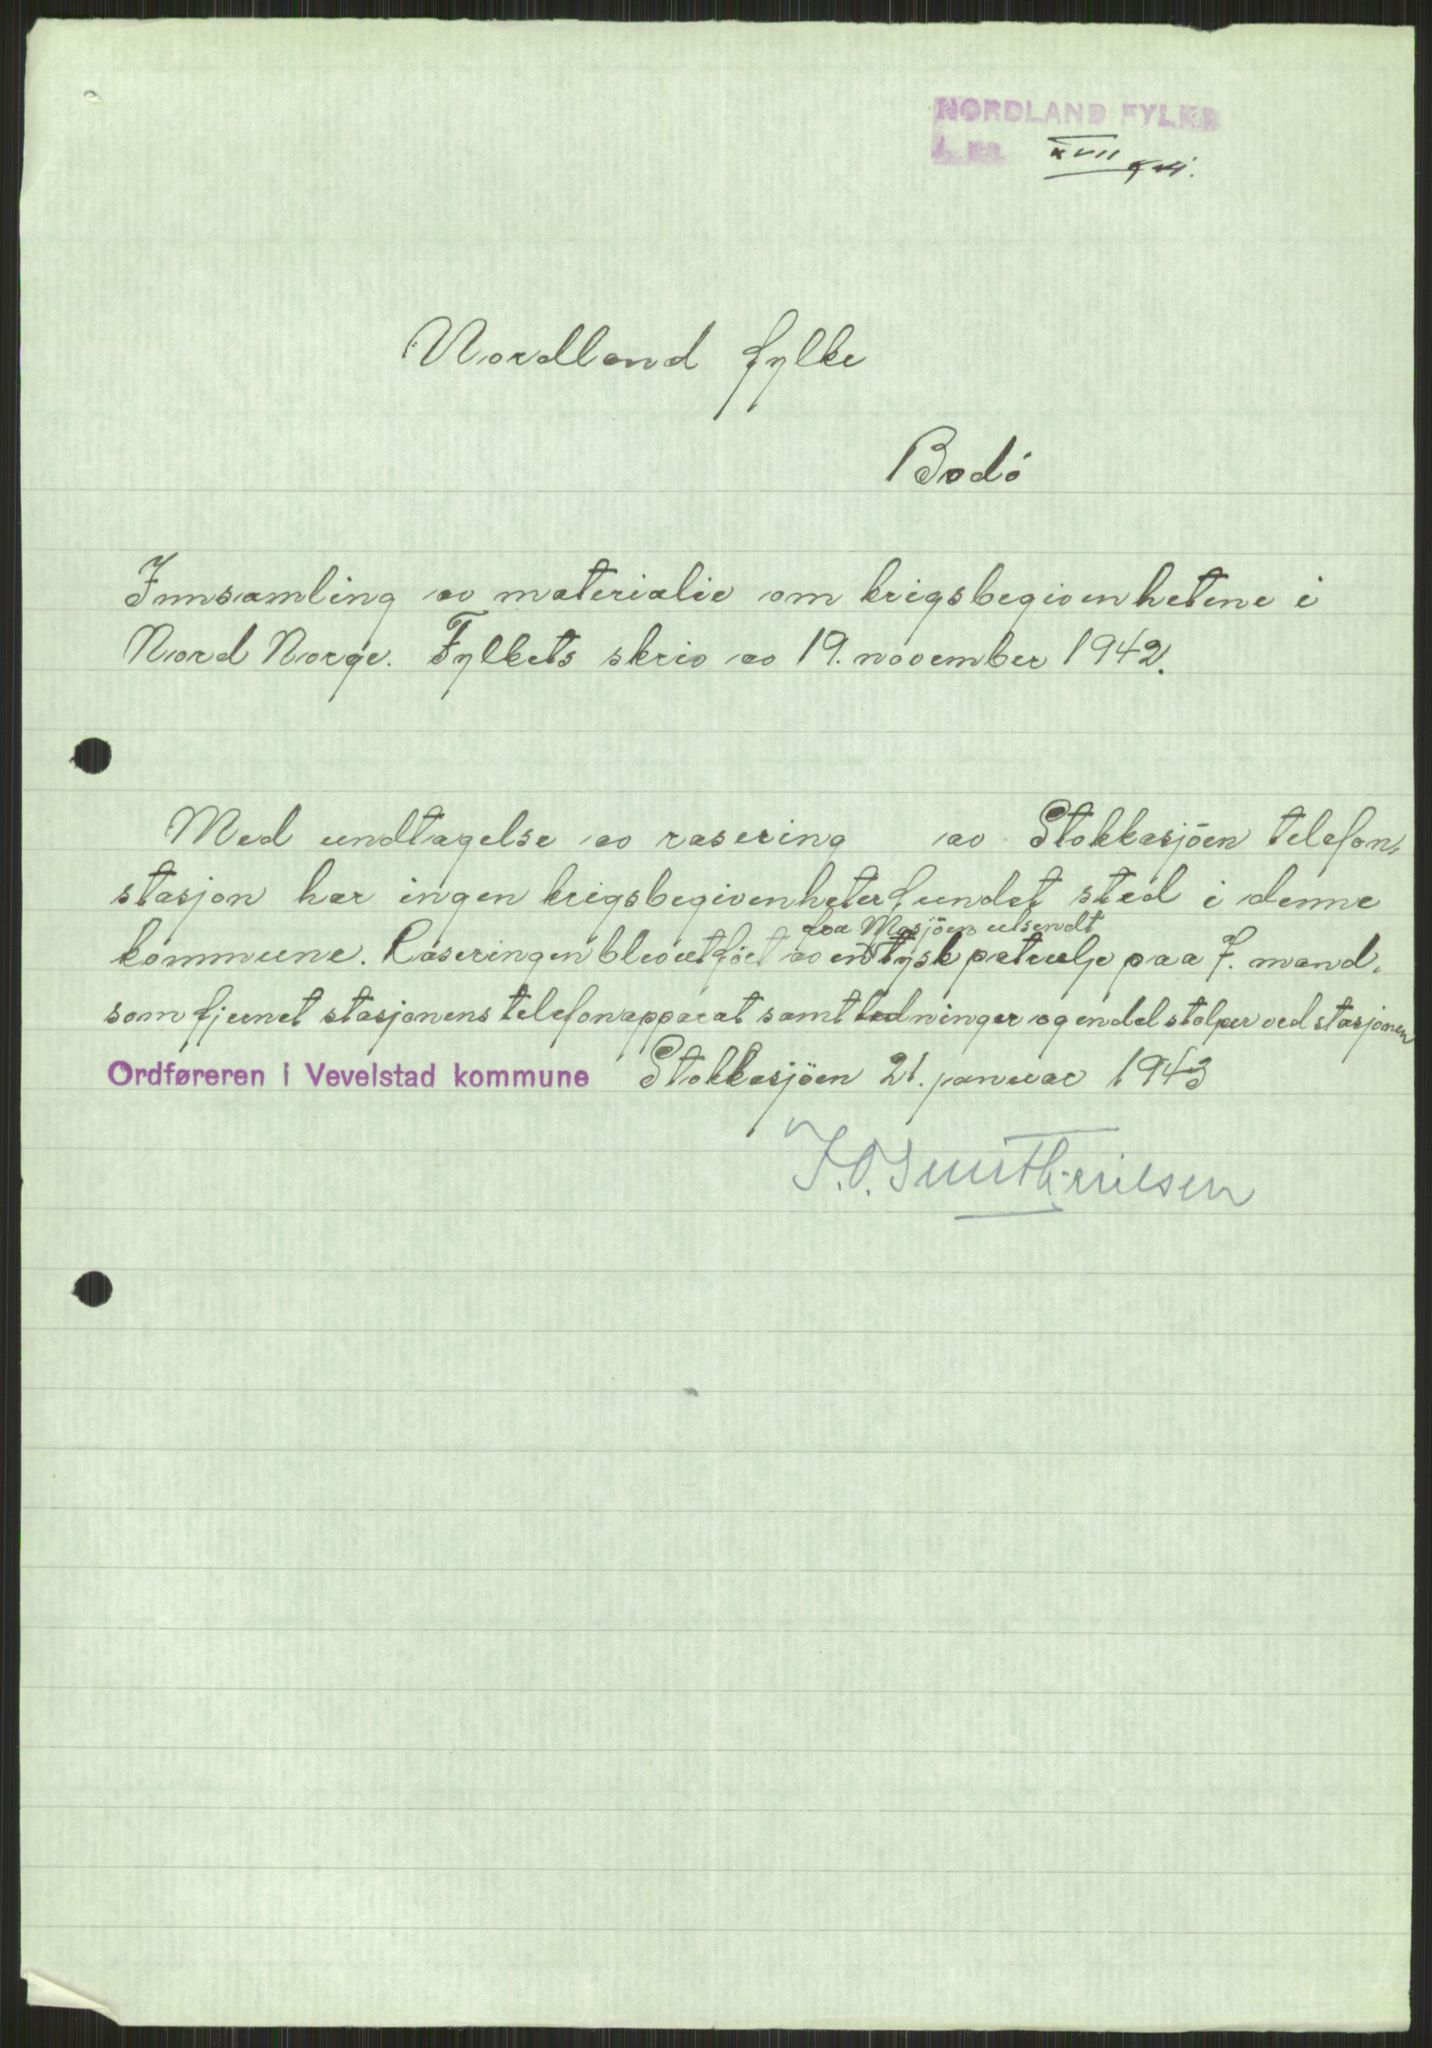 NORDLAND FYLKE
J. no. XVII
Nordland fylke
Bodó
Innsamling av materialie om krigsbegivenhetene i
Nord Norge. Fylkets skriv av 19. november 1942.
Med undtagelse av rasering av Stokkasjöen telefon-
stasjon har ingen krigsbegivenheter fundet sted i denne
fra Mosjöen utsendt
kommune. Raseringen blev utfört av en tysk patrulje paa 7. mand,
som fjernet stasjonens telefonapparat samt ledninger og endel stolper ved stasjonen
Ordføreren i Vevelstad kommune Stokkasjöen 21. januar 1943